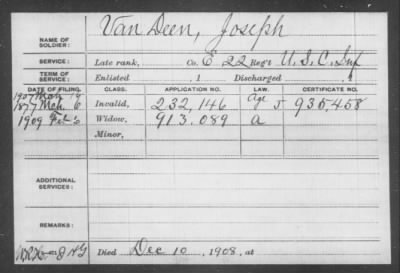 NAME OF SOLDIER: Van Deen, Joseph
SERVICE: Late rank, Co. E 22 Reg't U.S.C. Inf
TERM OF SERVICE: Enlisted , 1 Discharged , 1
DATE OF FILING. CLASS. APPLICATION NO. LAW. CERTIFICATE NO.
1907 Mch
1877 Mch 6 Invalid, 232,146 Age J 936,458
1909 Feb 6 Widow, 913.089 a
Minor,
ADDITIONAL SERVICES:
REMARKS:
Died Dec 10, 1908, at